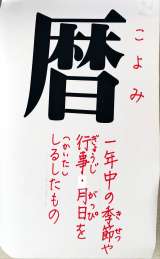 こよみ
暦
一年中の季節や
きせつ
行事・月日を
ぎょうじ
がっぴ
しるしたもの
(かいた)